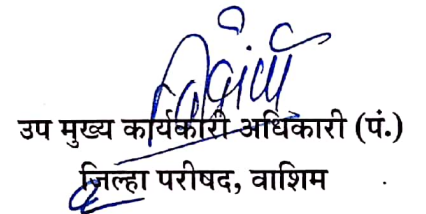 उप मुख्य कार्यकारी अधिकारी (पं.)
जिल्हा परीषद, वाशिम